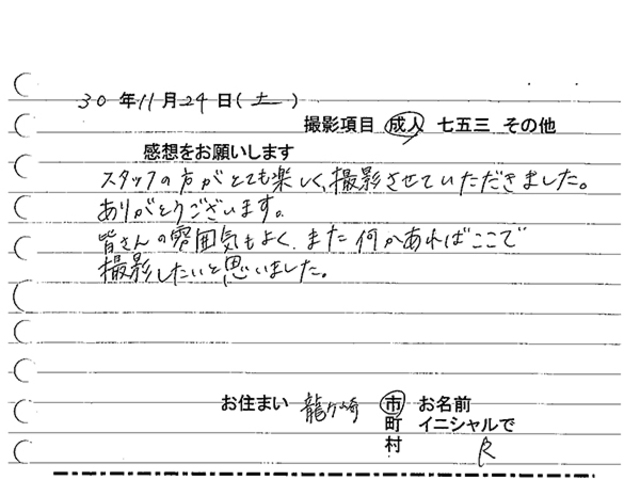 30年11月24日(土)
撮影項目 成人 七五三 その他
感想をお願いします
スタッフの方がとても楽しく、撮影させていただきました。
ありがとうございます。
皆さんの雰囲気もよく、また何かあればここで
撮影したいと思いました。
お住まい 龍ヶ崎 市 お名前
町 イニシャルで
村 R